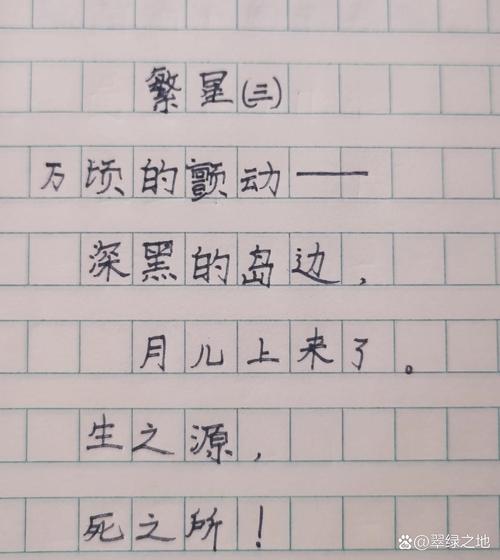 繁星(三)
万顷的颤动——
深黑的岛边,
月儿上来了。
生之源,
死之所!
@翠绿之地